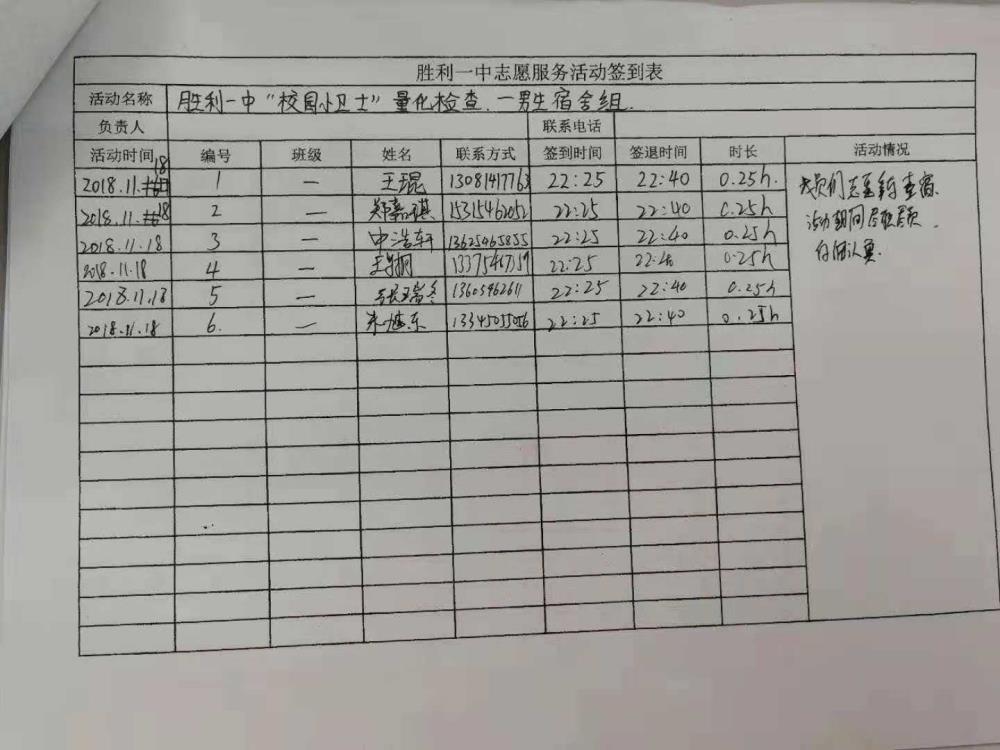 胜利一中志愿服务活动签到表
活动名称 胜利一中“校园小卫士”量化检查.一男生宿舍组.
负责人 联系电话
活动时间 编号 班级 姓名 联系方式 签到时间 签退时间 时长 活动情况
2018.11.18 1 一 王琨 13081417763 22:25 22:40 0.25h.
2018.11.18 2 一 郑嘉祺 15315462052 22:25 22:40 0.25h
2018.11.18 3 一 申浩轩 13625465855 22:25 22:40 0.25h
2018.11.18 4 一 22:25 22:40 0.25h
2018.11.18 5 一 13605462611 22:25 22:40 0.25h
2018.11.18 6. 一 22:25 22:40 0.25h
活动期间